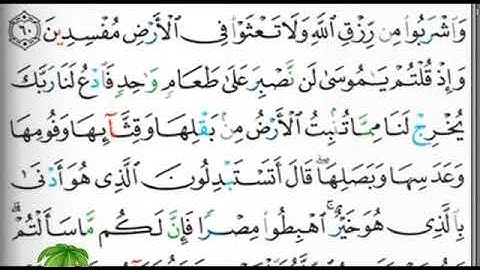 وَٱشْرَبُوا۟ مِن رِّزْقِ ٱللَّهِ وَلَا تَعْثَوْا۟ فِى ٱلْأَرْضِ مُفْسِدِينَ ٦٠
وَإِذْ قُلْتُمْ يَٰمُوسَىٰ لَن نَّصْبِرَ عَلَىٰ طَعَامٍ وَٰحِدٍ فَٱدْعُ لَنَا رَبَّكَ
يُخْرِجْ لَنَا مِمَّا تُنۢبِتُ ٱلْأَرْضُ مِنۢ بَقْلِهَا وَقِثَّآئِهَا وَفُومِهَا
وَعَدَسِهَا وَبَصَلِهَا ۖ قَالَ أَتَسْتَبْدِلُونَ ٱلَّذِى هُوَ أَدْنَىٰ
بِٱلَّذِى هُوَ خَيْرٌ ۚ ٱهْبِطُوا۟ مِصْرًا فَإِنَّ لَكُم مَّا سَأَلْتُمْ ۗ